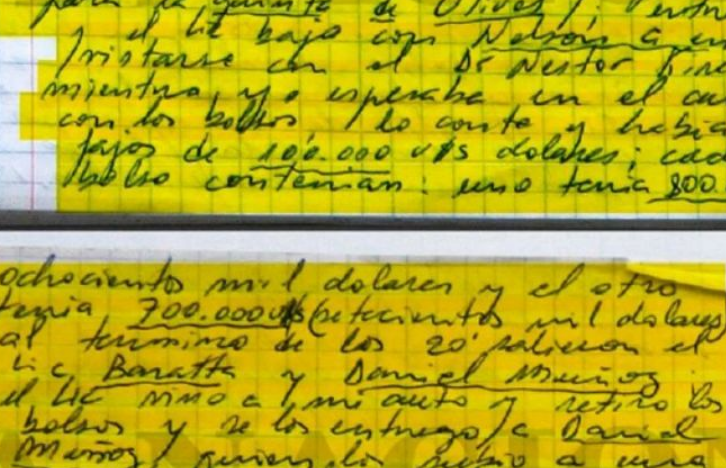 para la quinta de Olivos
el Lic bajo con Nelson G en
/vistarse con el Dr Nestor Kirc
mientras yo esperaba en el au
con los bolsos / lo conte y habia
fajos de 100.000 u$s dolares; cad
bolso contenian: uno tenia 800
ochocientos mil dolares y el otro
tenia 700.000 u$s (setecientos mil dolares
al termino de los 20' salieron el
Lic Baratta y Daniel Muñoz
el Lic vino a / mi auto y retiro los
bolsos y se los entrego / a Daniel
Muñoz / quien lo subio a una